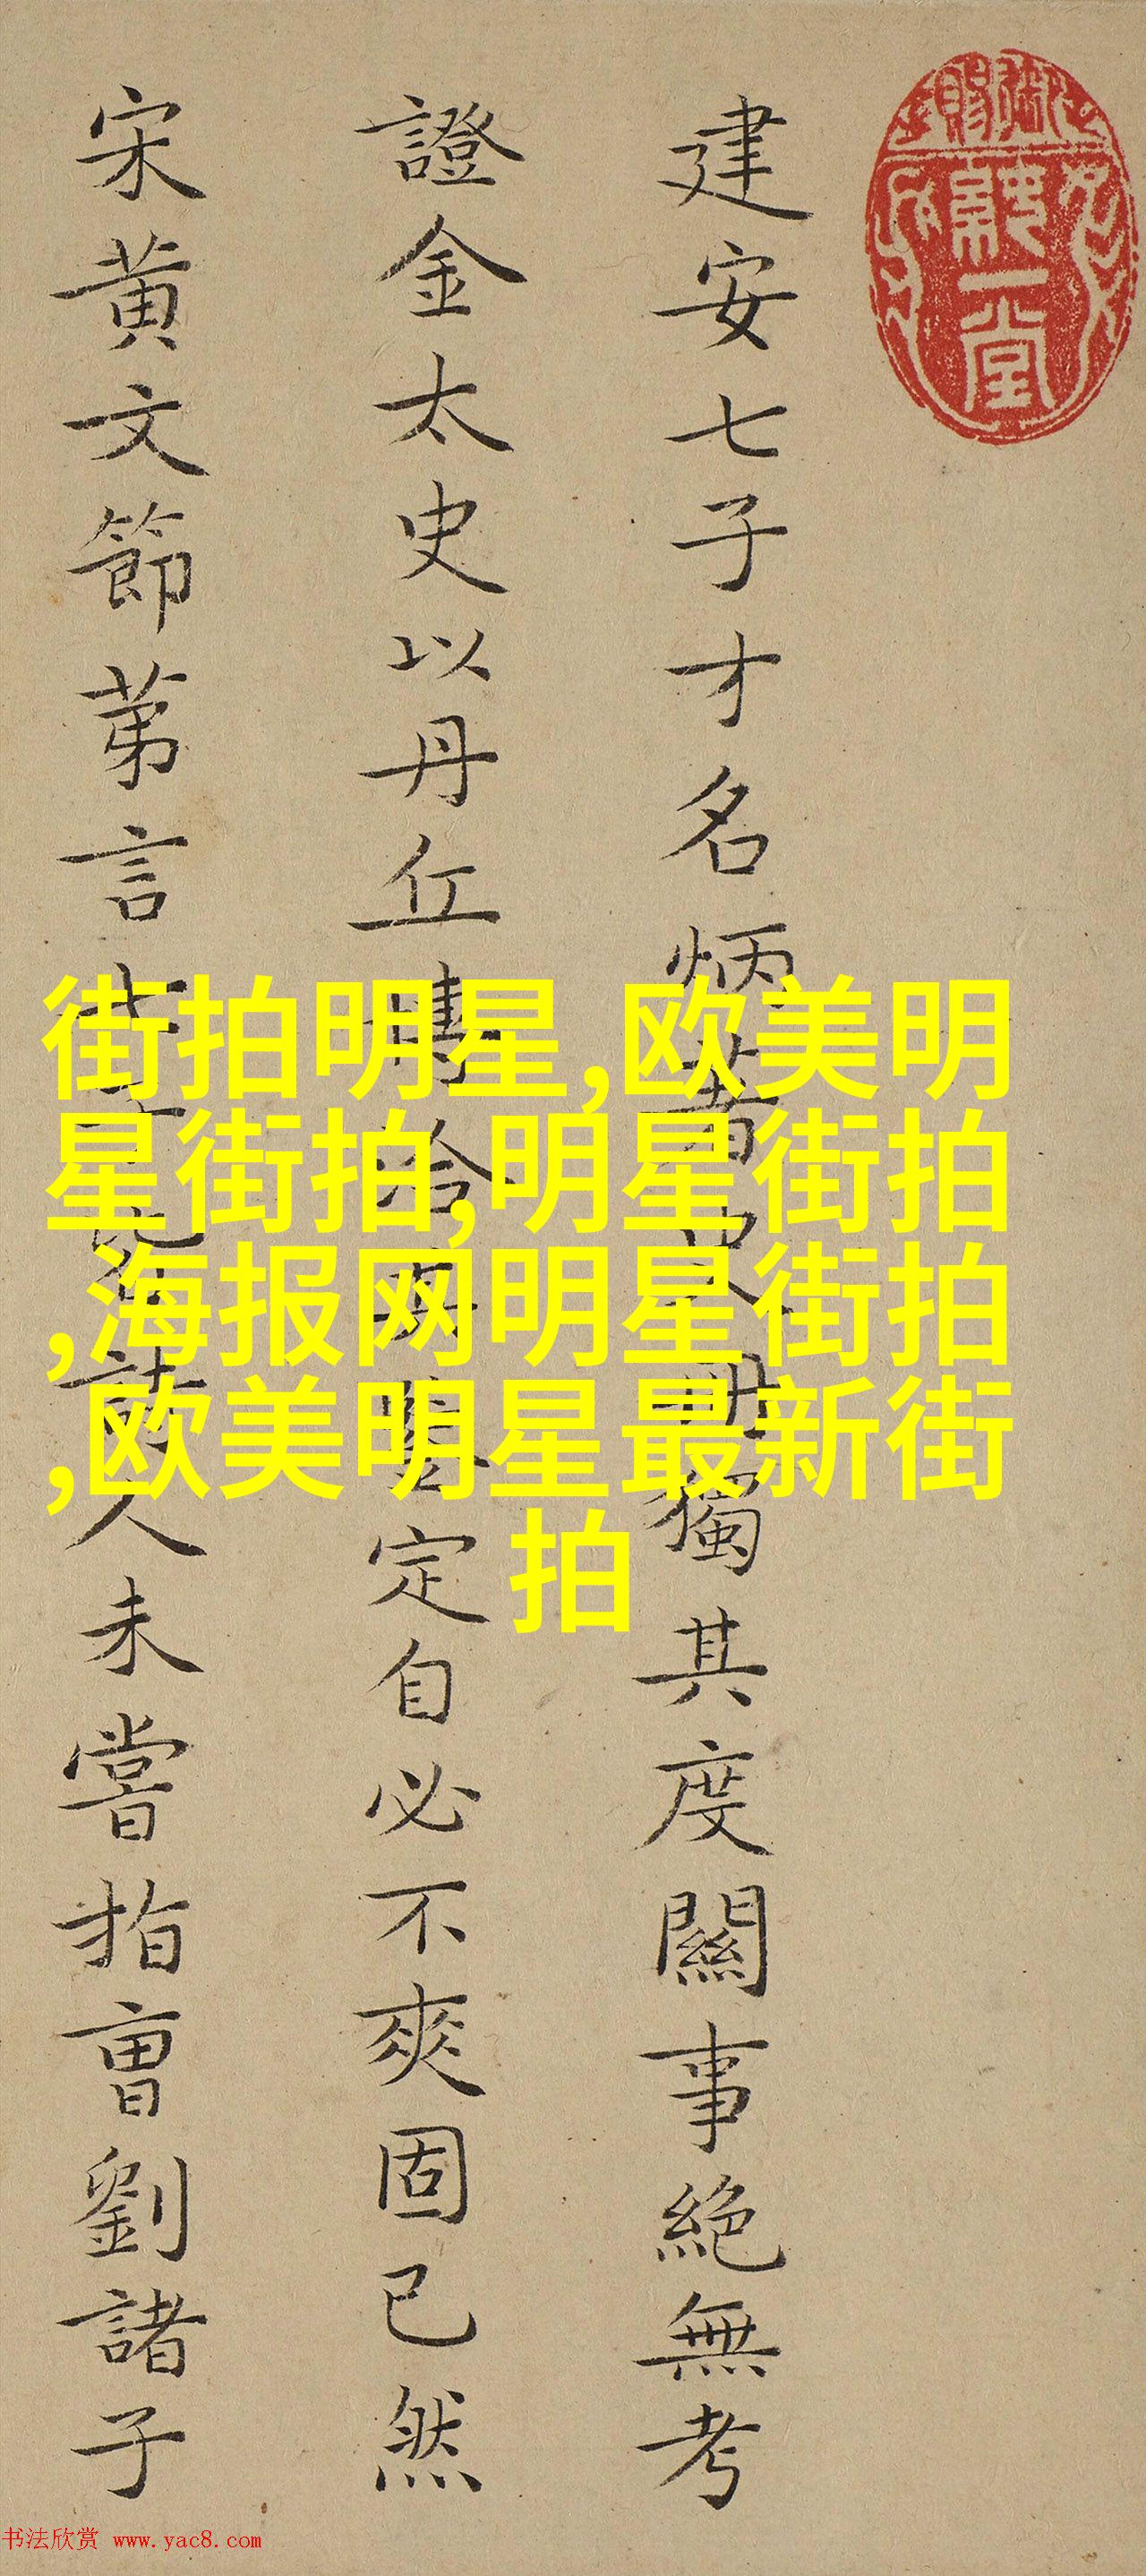 建安七子才名炳著史冊獨其度關事絕無考
證金太史以丹丘博洽再鑒定自必不爽固已然
宋黃文節苐言七子寫詩人未嘗指曹劉諸子
街拍明星,欧美明
星街拍,明星街拍
,海报网明星街拍
,欧美明星最新街
拍
书法欣赏 www.yac8.com